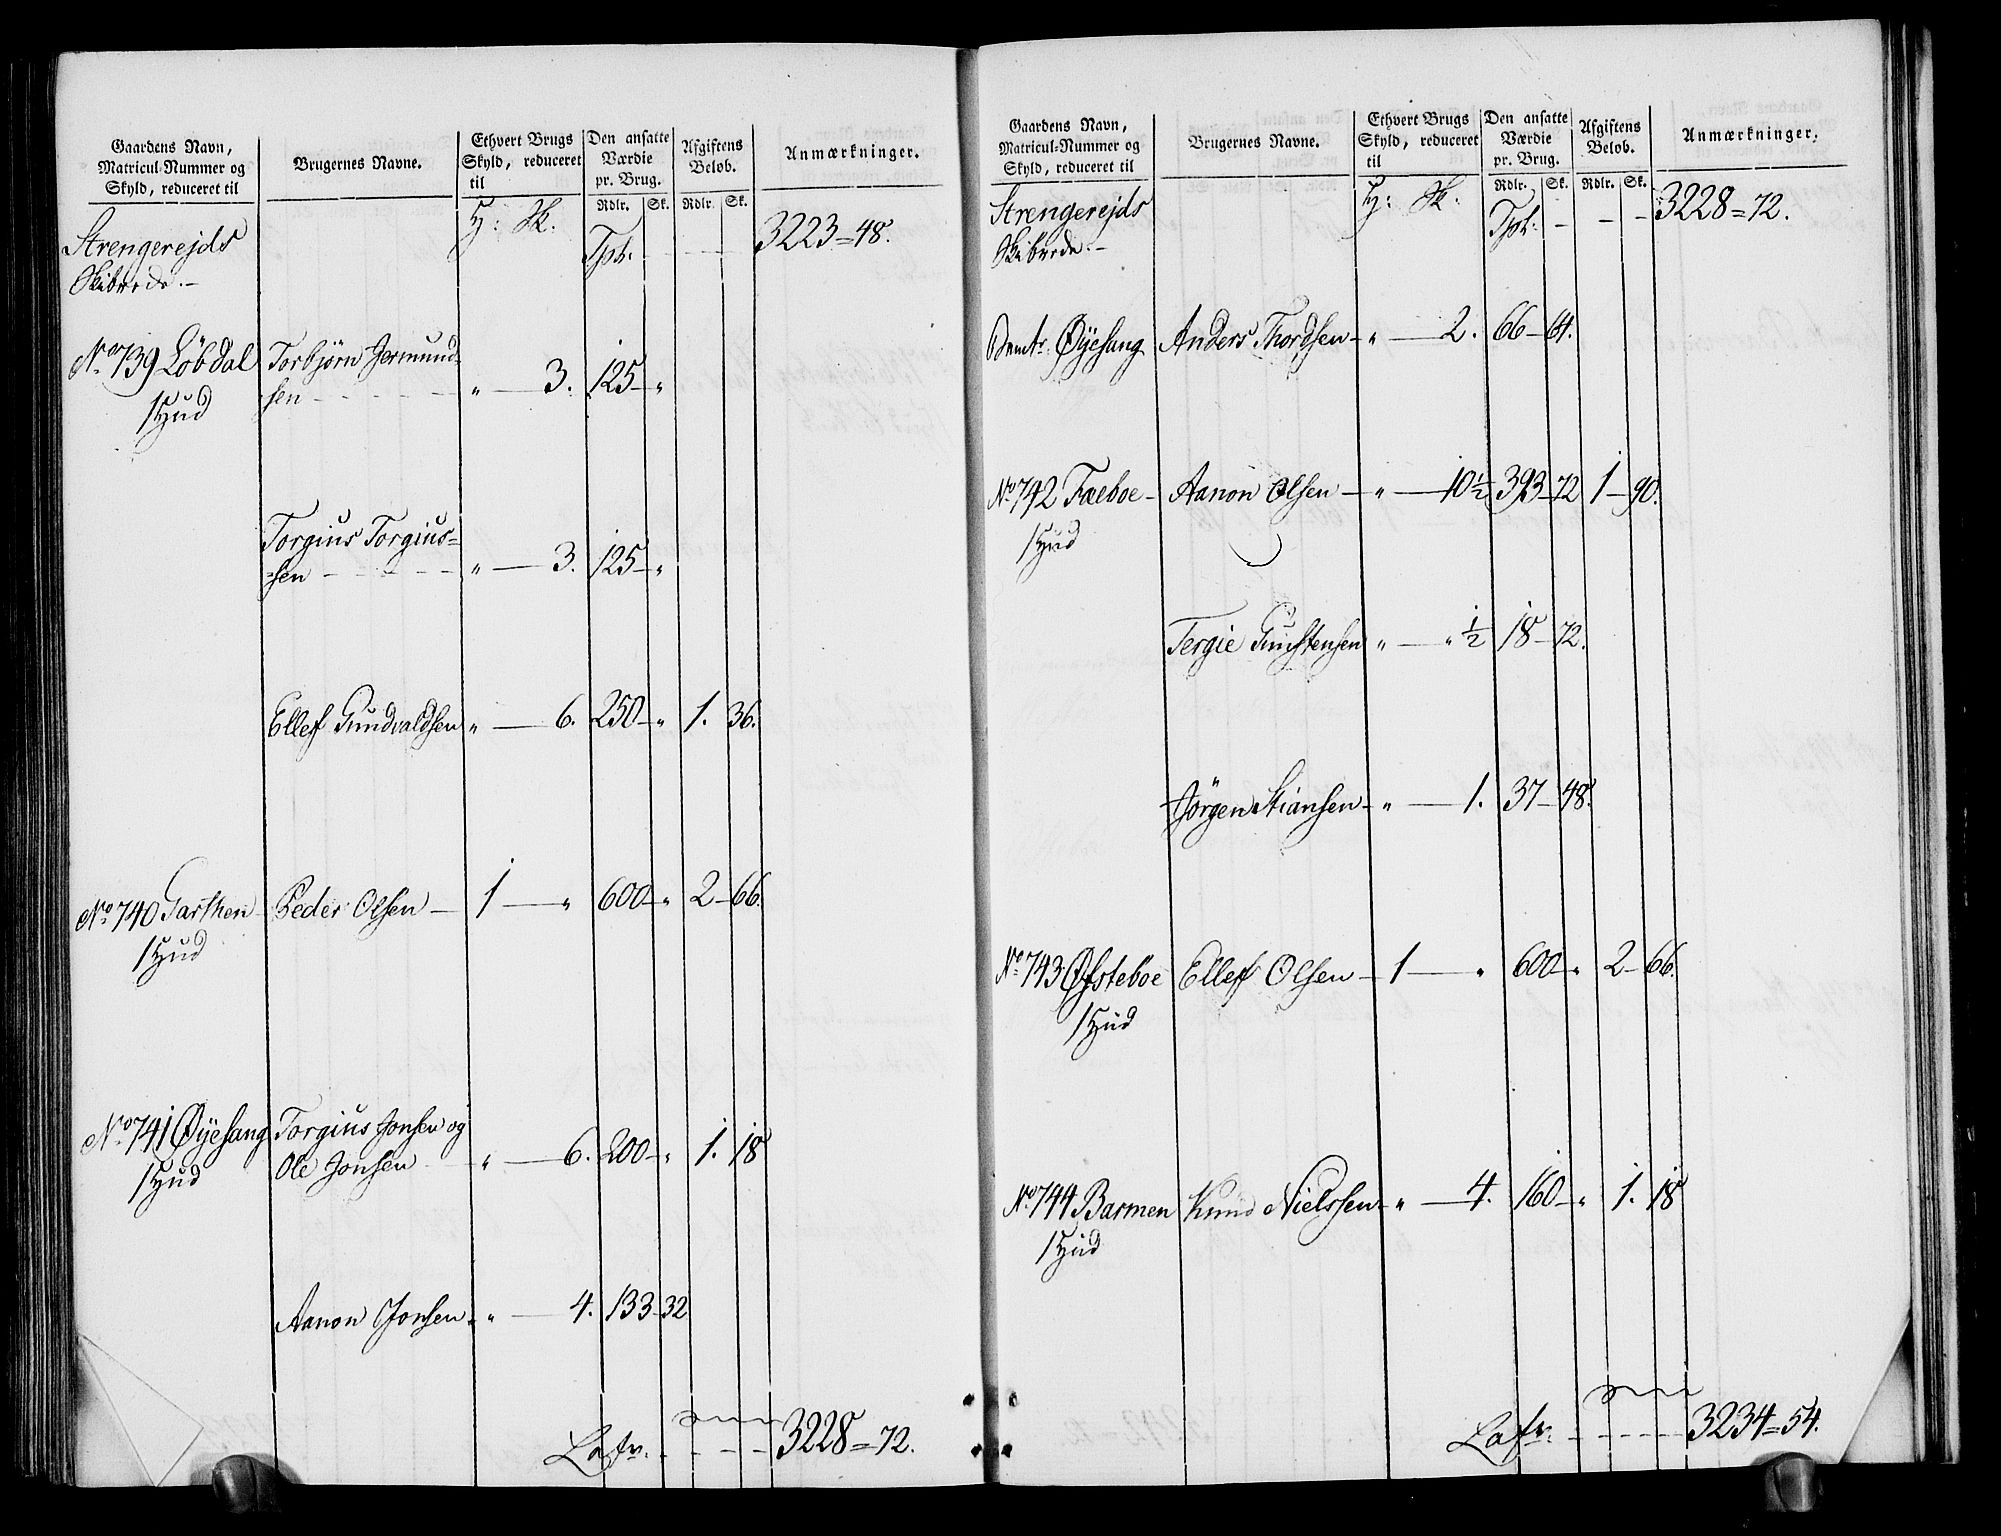 Gaardens Navn,
Matricul-Nummer og
Skyld, reduceret til
Brugernes Navne.
Ethvert Brugs
Skyld, reduceret
til
Den ansatte
Værdie
pr. Brug.
Rdlr. Sk.
Afgiftens
Beløb.
Rdlr. Sk.
Anmærkninger.
Strengerejds
Skibrede.-
H: Sk.
Tpt. - - - 3223=48.
No 739 Löbdal Torbjörn Jermund-
sen - - - " - 3. 125 - "
1 Hud
Torgius Torgius=
=sen - - - " - 3. 125 - "
Ellef Gundvaldsen " - 6. 250 - " 1. 36.
No 740 Garthen - Peder Olsen - 1 - " 600 - " 2 - 66.
1 Hud
No 741 Øyesang Torgius Jonsen og
Ole Jonsen - " - 6. 200 - " 1. 18
1 Hud
Aanon Jonsen - " - 4. 133 - 32
Latr. - - - 3228=72.
Gaardens Navn,
Matricul-Nummer og
Skyld, reduceret til
Brugernes Navne.
Ethvert Brugs
Skyld, reduceret
til
Den ansatte
Værdie
pr. Brug.
Rdlr. Sk.
Afgiftens
Beløb.
Rdlr. Sk.
Anmærkninger.
Strengerejds
Skibrede.-
H: Sk.
Tpt. - - - 3228=72.
Øyesang Anders Thordsen - " - 2. 66 - 64.
No 742 Faeboe - Aanon Olsen - " - 10 1/2 393 - 72 1 - 90.
1 Hud
Tergie Gunstensen " - " 1/2 18 - 72.
Jörgen Stiansen - " - 1. 37 - 48.
No 743 Øfsteboe Ellef Olsen - 1 - " 600 - " 2 - 66.
1 Hud
No 744 Barmen Knud Nielssen - " - 4. 160 - " 1. 18
1 Hud
Latr. - - - 3234=54.